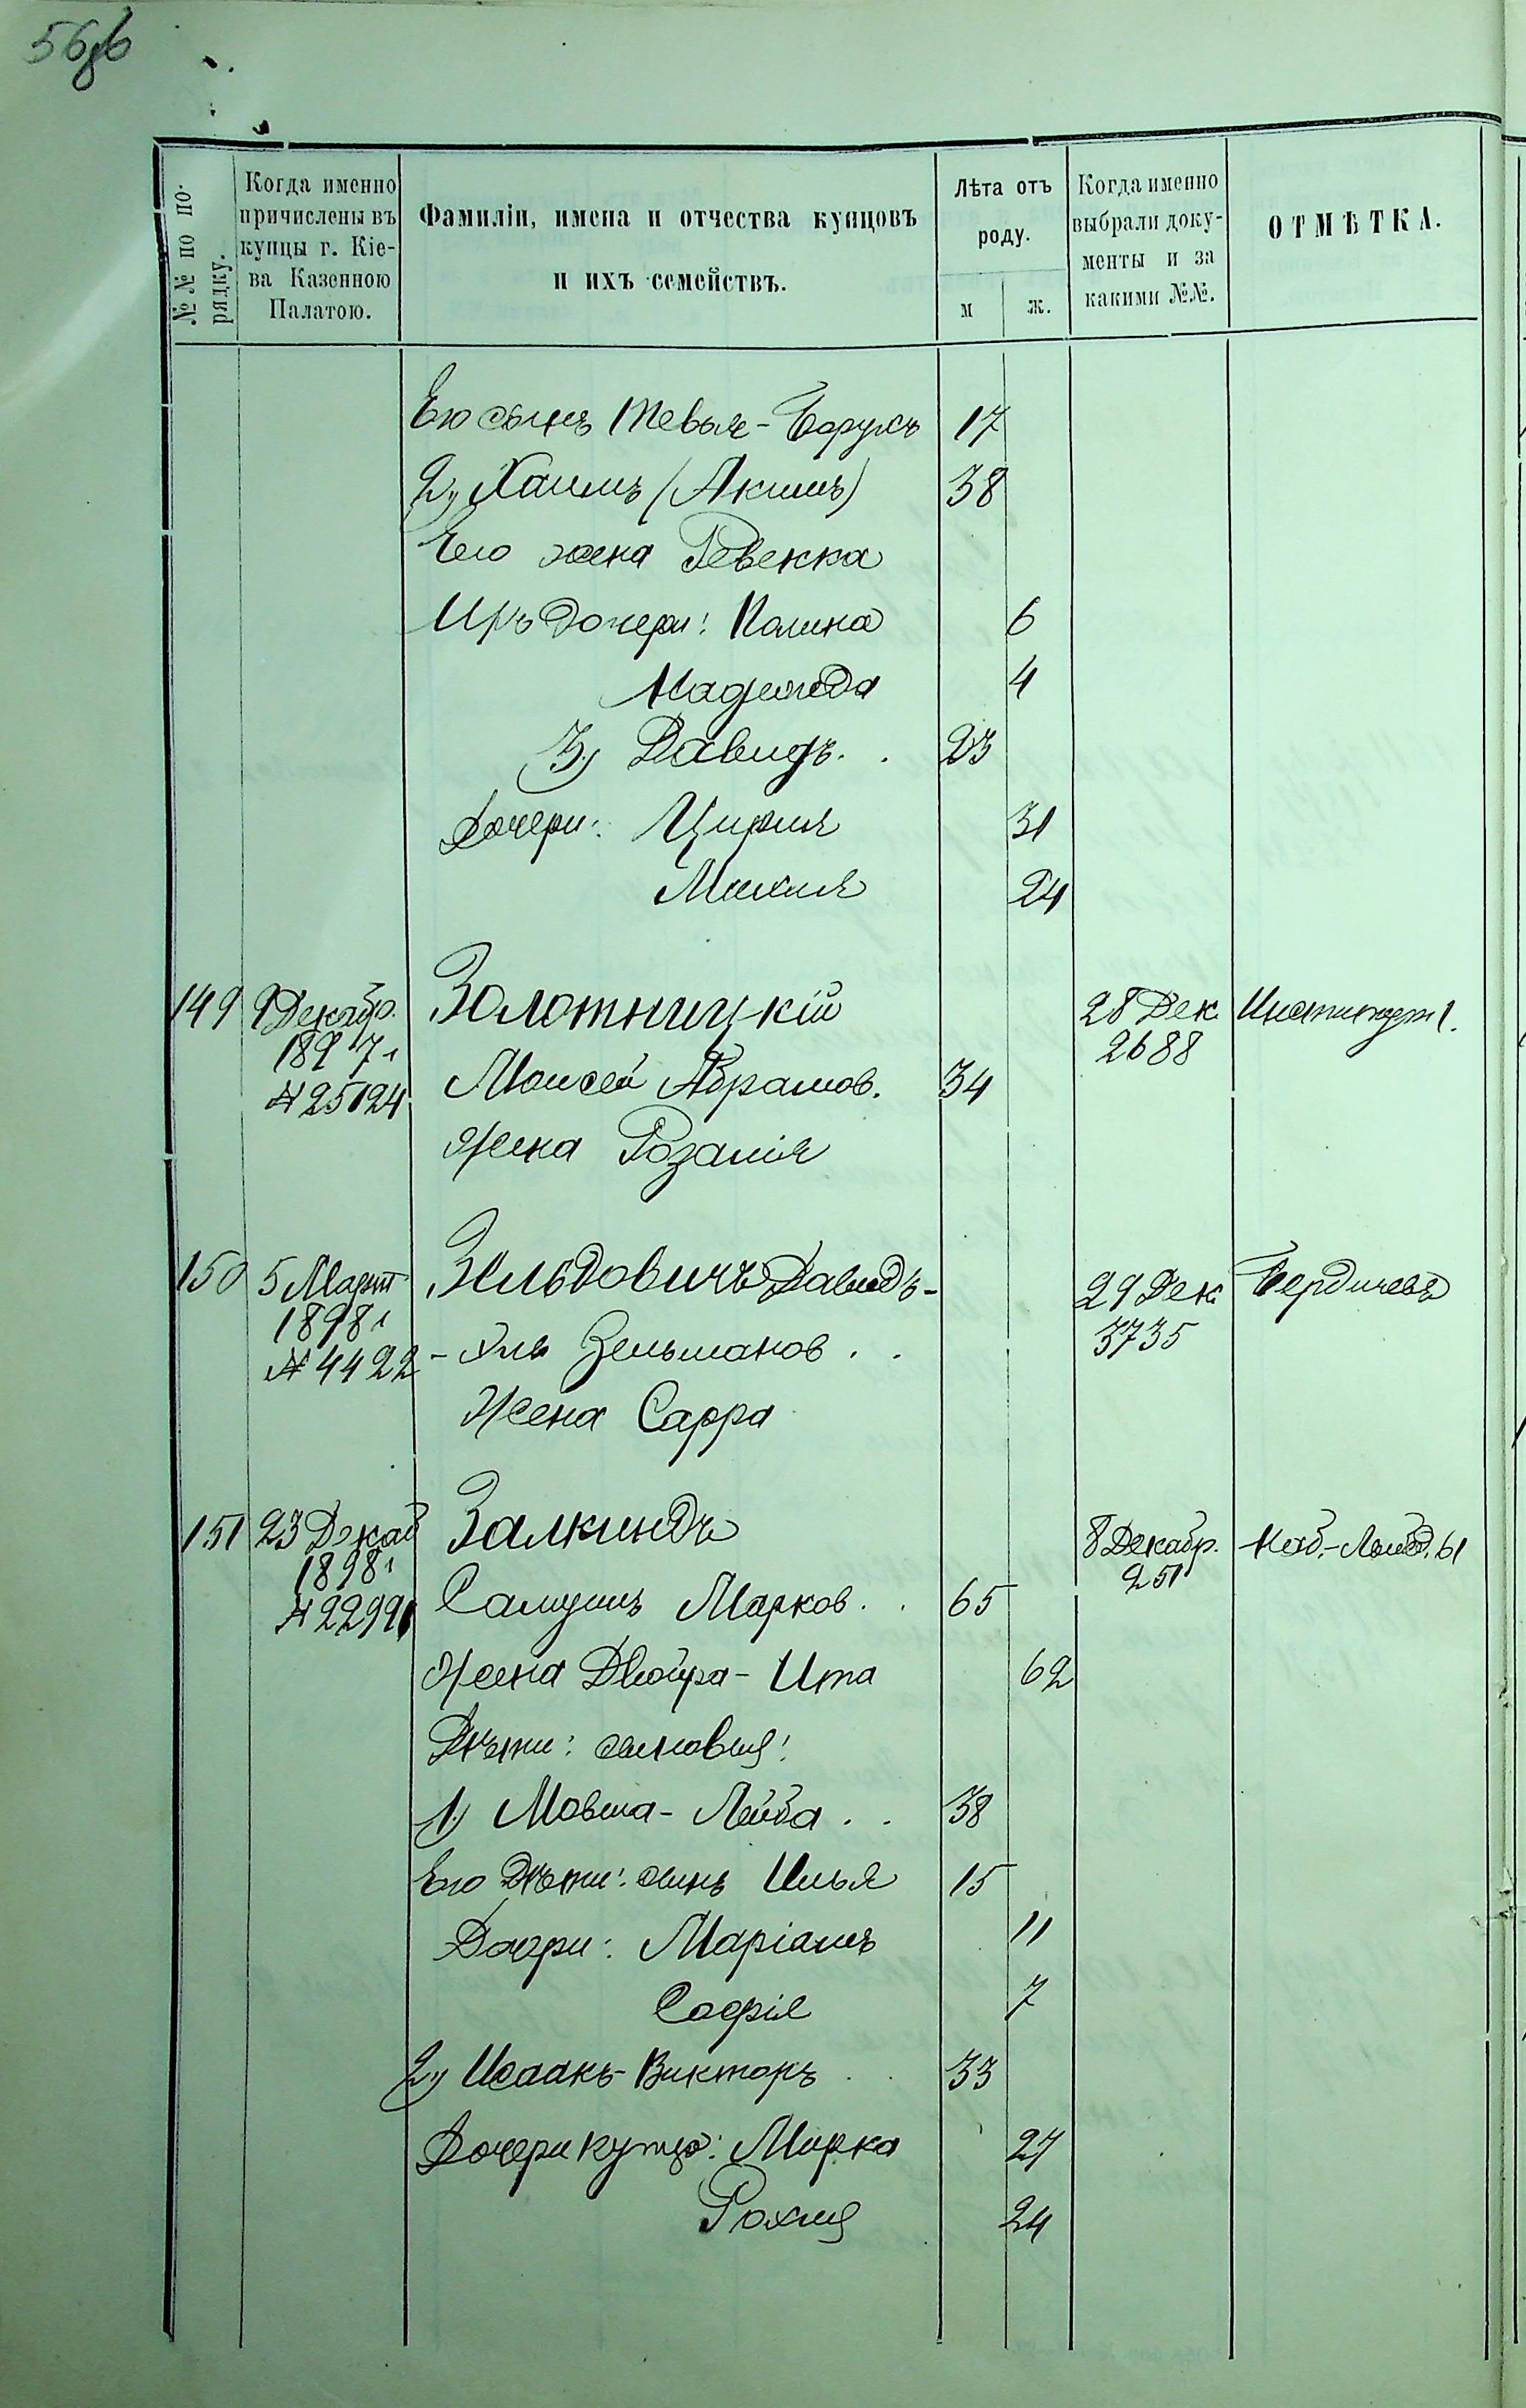 56об
№№ по порядку.
Когда именно
причислены въ
купцы г. Кіе-
ва Казенною
Палатою.
Фамиліи, имена и отчества купцовъ
и ихъ семействъ.
Лѣта отъ
роду.
м ж.
Когда именно
выбрали доку-
менты и за
какими №№.
ОТМѢТКА.
Его сынъ Тевье-Борухъ 17
2) Хаимъ (Акимъ) 38
Его жена Ревекка
Ихъ дочери: Полина 6
Надежда 4
3) Давидъ. . 23
Дочери: Цирля 31
Михля 24
149 9 Декабр. Золотницкій 28 Дек. Институт 1.
1897 г 2688
№ 25124 Моисей Абрамов. 34
Жена Розалія
150 5 Март Зельдовичъ Давидъ- 29 Дек Бердичевъ
1898 г 3735
№ 4422 - Хиль Зельманов . .
Жена Сарра
151 23 Декаб Залкиндъ 8 Декабр. Наб.-Лыбед. 61
1898 г 251
№ 22991 Самуилъ Марков . . 65
Жена Двойра-Ита 62
Дѣти: сыновья:
1) Мовша-Лейба . . 38
Его дѣти: сынъ Илья 15
Дочери: Маріамъ 11
Софія 7
2) Исаакъ-Викторъ . . 33
Дочери купца: Мирка 27
Рохля 24